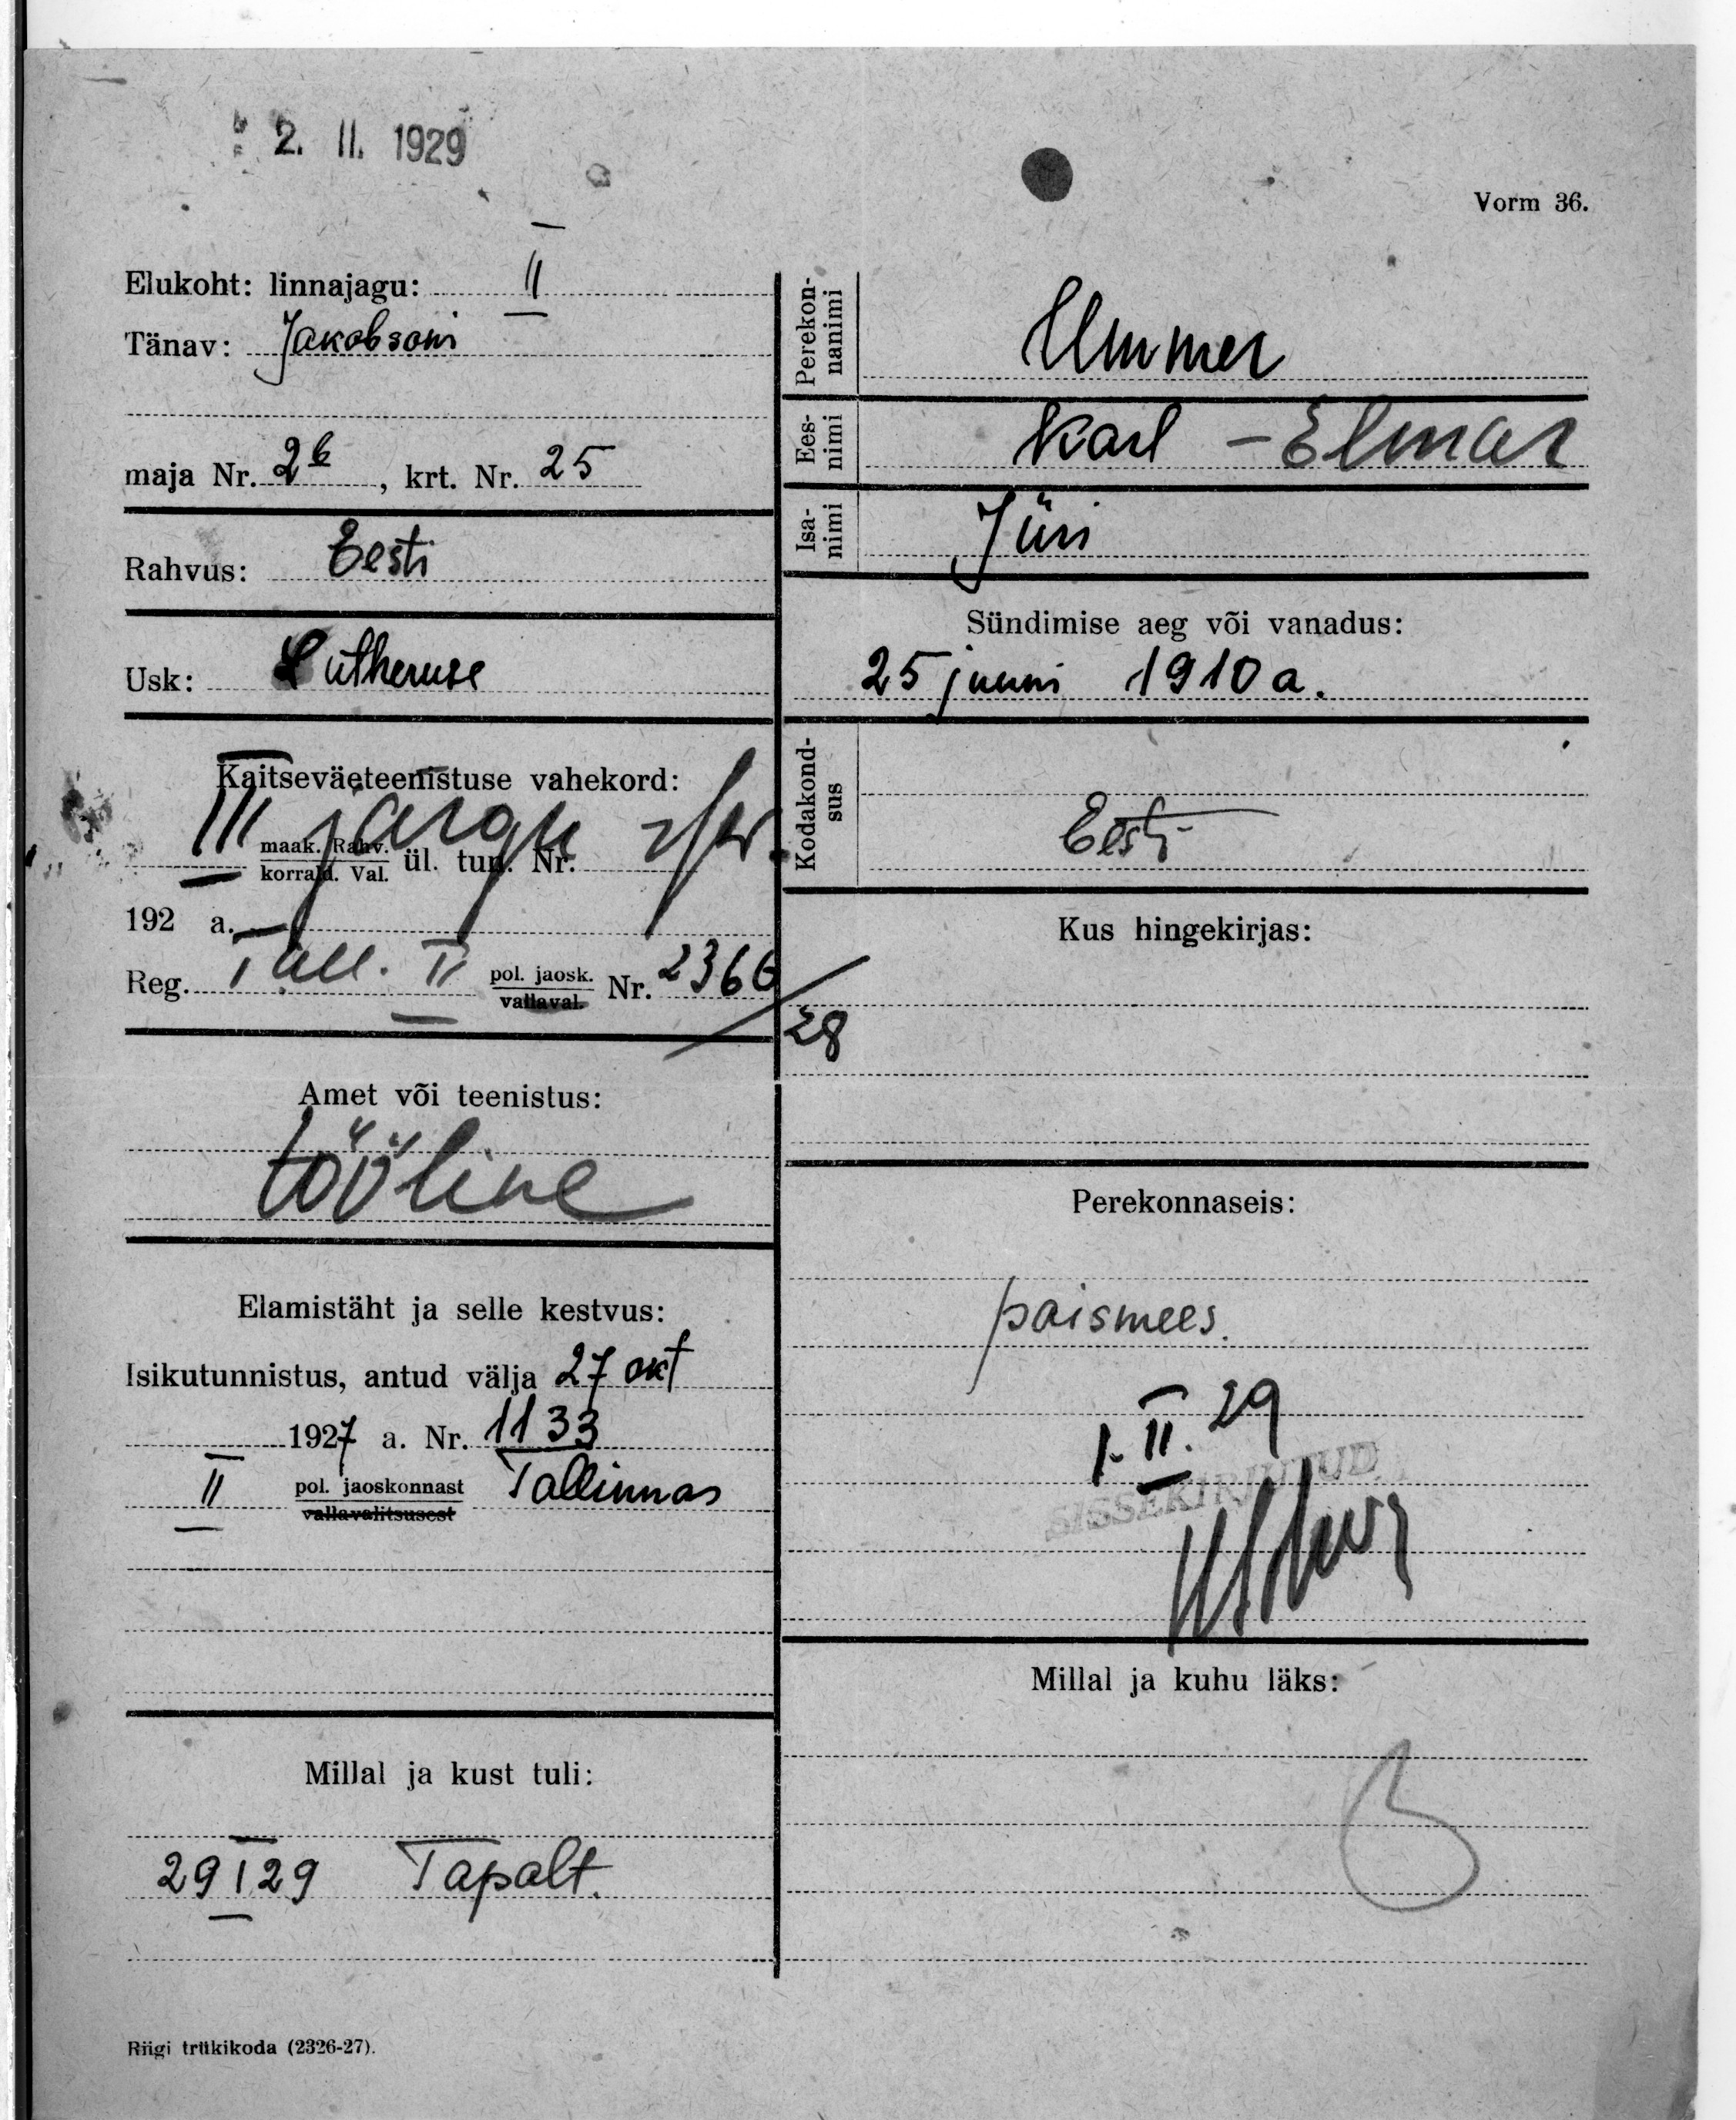 2. II. 1929
Vorm 36.
Elukoht: linnajagu: II
Tänav: Jakobsoni
maja Nr. 2b, krt. Nr. 25
Rahvus: Eesti
Usk: Lutheruse
Kaitseväeteenistuse vahekord:
III järgu
maak. Rahv.
korrald. Val. ül. tun. Nr.
192 a.
Reg. Tall. II pol. jaosk. Nr. 2366/28
vallaval.
Amet või teenistus:
tööline
Elamistäht ja selle kestvus:
Isikutunnistus, antud välja 27 okt
1927 a. Nr. 1133
II pol. jaoskonnast Tallinnas
vallavalitsusest
Millal ja kust tuli:
29 I 29 Tapalt.
Riigi trükikoda (2326-27).
Perekon-
nanimi
Ummer
Ees-
nimi
Karl - Elmar
Isa-
nimi
Jüri
Sündimise aeg või vanadus:
25 juuni 1910 a.
Kodakond-
sus
Eesti
Kus hingekirjas:
Perekonnaseis:
poismees.
1. II. 29
SISSEKIRJUTUD
Millal ja kuhu läks: